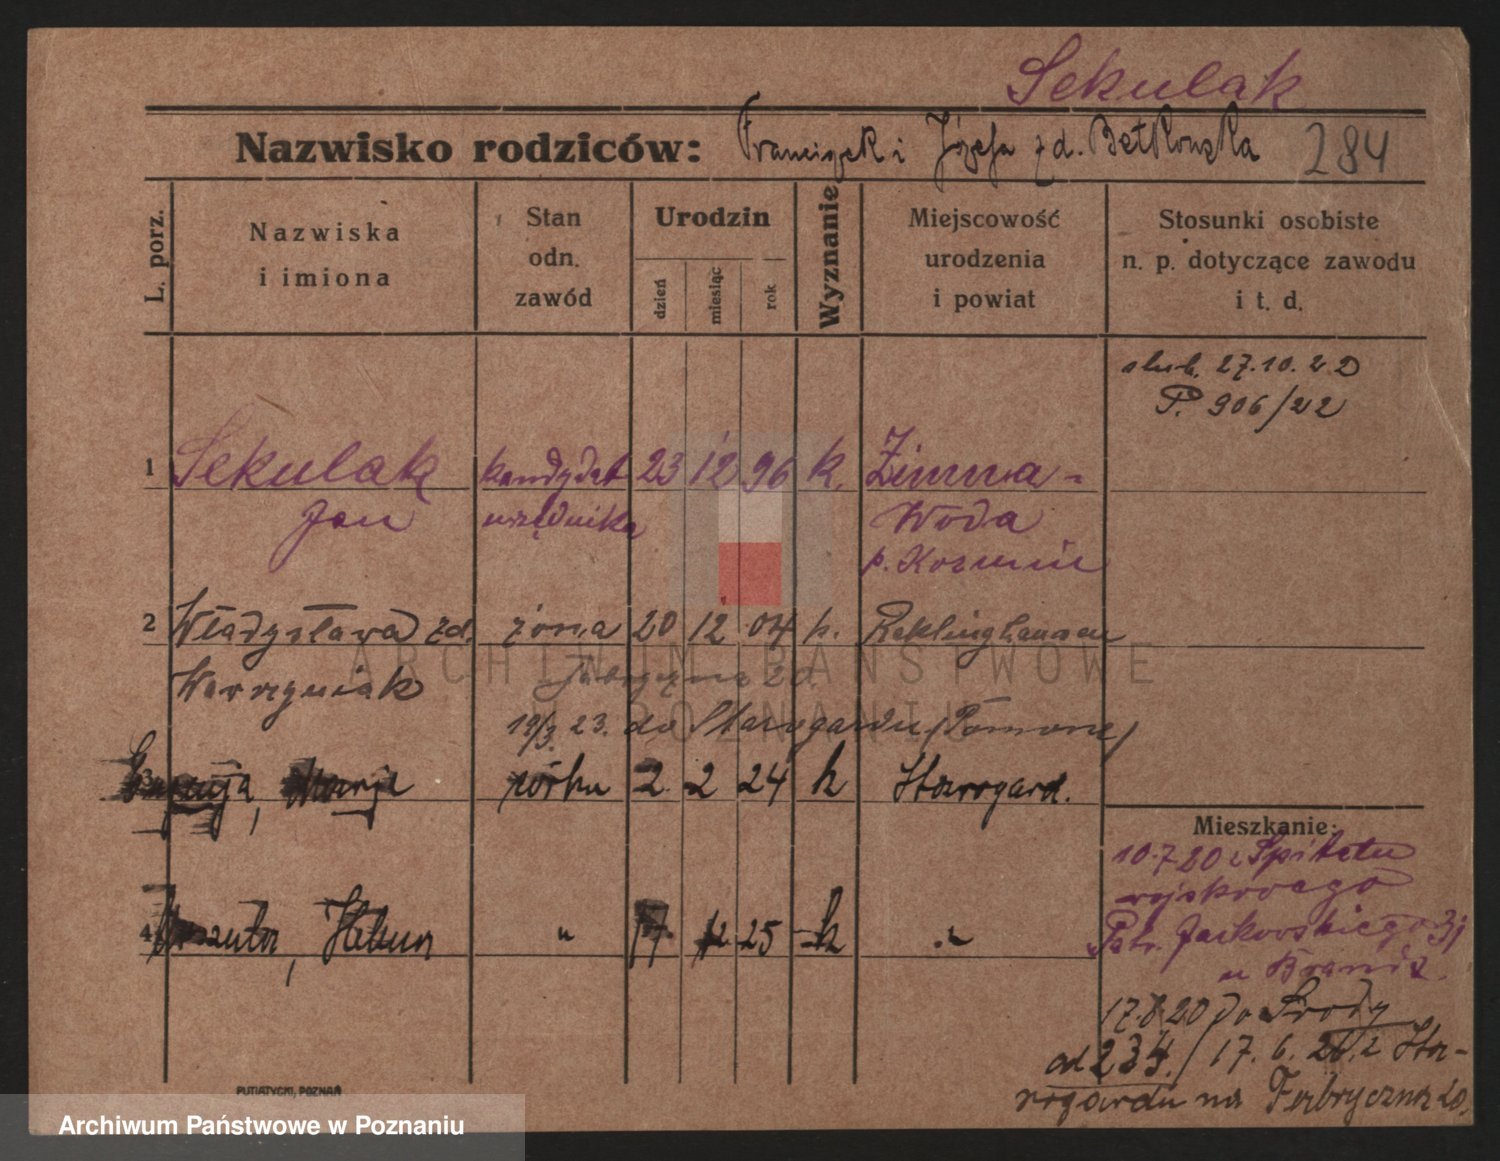 Sekulak
Nazwisko rodziców: Franciszek i Józefa z d. Betkowska 284
L. porz.
Nazwiska
i imiona
Stan
odn.
zawód
Urodzin
dzień
miesiąc
rok
Wyznanie
Miejscowość
urodzenia
i powiat
Stosunki osobiste
n. p. dotyczące zawodu
i t. d.
ślub. 27.10.22
P. 906/22
1 Sekulak kandydat 23 12 96 k. Zimna-
Jan urzędnika Woda
p. Koźmin
2 Władysława zd. żona 20 12 04 k. Reklinghausen
Wawrzyniak
19/3. 23. do Starogardu (Pomorze)
3 córka 2. 2 24 k Starogard.
Mieszkanie:
10.7.20 z Szpitalu
wojskowego
4 " 17. 12 25 k "
Ptr. Jackowskiego 31
u
17.8.20 do Środy
od 234./17.6. 26. z Sta-
rogardu na Fabryczna 20.
PUTIATYCKI, POZNAŃ
ARCHIWUM PAŃSTWOWE
W POZNANIU
Archiwum Państwowe w Poznaniu